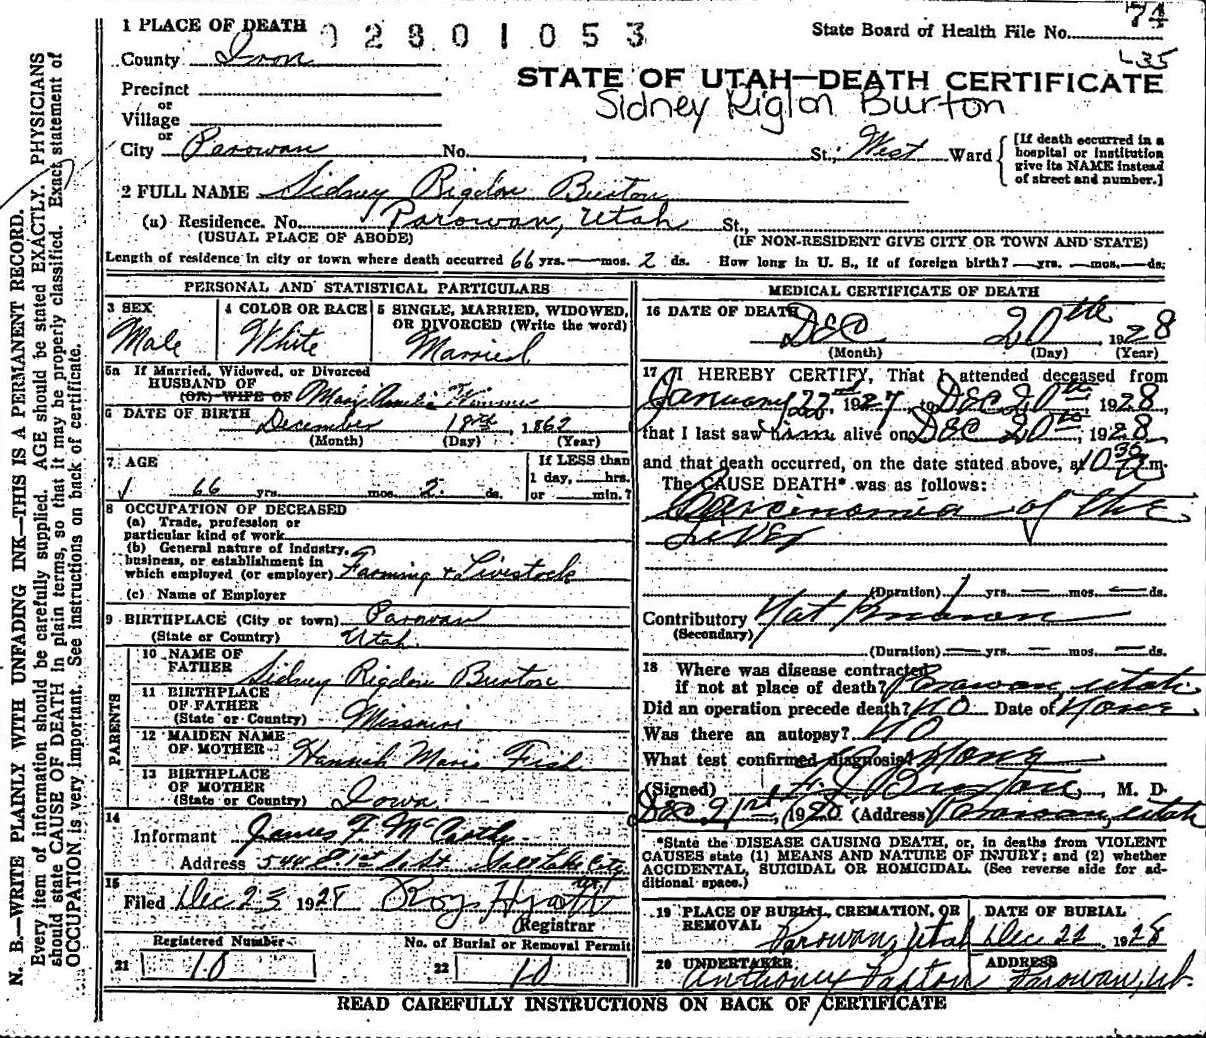 74
1 PLACE OF DEATH 02801053 State Board of Health File No.
L35
County Iron
STATE OF UTAH—DEATH CERTIFICATE
Sidney Rigdon Burton
Precinct
or
Village
or
City Parowan No. , St.; West Ward
[If death occurred in a
hospital or institution
give its NAME instead
of street and number.]
2 FULL NAME Sidney Rigdon Burton
(a) Residence. No. Parowan, Utah St.,
(USUAL PLACE OF ABODE) (IF NON-RESIDENT GIVE CITY OR TOWN AND STATE)
Length of residence in city or town where death occurred 66 yrs. — mos. 2 ds. How long in U. S., if of foreign birth? — yrs. — mos. — ds.
PERSONAL AND STATISTICAL PARTICULARS
3 SEX
Male
4 COLOR OR RACE
White
5 SINGLE, MARRIED, WIDOWED,
OR DIVORCED (Write the word)
Married
5a If Married, Widowed, or Divorced
HUSBAND OF
(OR) WIFE OF Mary Amelia
6 DATE OF BIRTH December 18th, 1862
(Month) (Day) (Year)
7 AGE
66 yrs. mos. 2 ds.
If LESS than
1 day, hrs.
or min.?
8 OCCUPATION OF DECEASED
(a) Trade, profession or
particular kind of work
(b) General nature of industry,
business, or establishment in
which employed (or employer) Farming & Livestock
(c) Name of Employer
9 BIRTHPLACE (City or town) Parowan
(State or Country) Utah.
PARENTS
10 NAME OF
FATHER Sidney Rigdon Burton
11 BIRTHPLACE
OF FATHER
(State or Country) Missouri
12 MAIDEN NAME
OF MOTHER Hannah Maria Fish
13 BIRTHPLACE
OF MOTHER
(State or Country) Iowa
14
Informant James F. McCarthy
Address 544 E 1st So St. Salt Lake City
15
Filed Dec 23 1928 Roy Hyatt
Registrar
Registered Number No. of Burial or Removal Permit
21 10 22 10
MEDICAL CERTIFICATE OF DEATH
16 DATE OF DEATH
Dec 20th 1928
(Month) (Day) (Year)
17 I HEREBY CERTIFY, That I attended deceased from
January 22nd 1927, to Dec 20th 1928,
that I last saw him alive on Dec 20th, 1928,
and that death occurred, on the date stated above, at 10 30 m.
The CAUSE DEATH* was as follows:
Carcinomia of the
Liver
(Duration) 1 yrs. — mos. — ds.
Contributory Not
(Secondary)
(Duration) — yrs. — mos. — ds.
18 Where was disease contracted
if not at place of death? Parowan, Utah
Did an operation precede death? No Date of None
Was there an autopsy? No
What test confirmed diagnosis?
(Signed) Burton, M. D.
Dec 21st, 1928 (Address) Parowan, Utah
*State the DISEASE CAUSING DEATH, or, in deaths from VIOLENT
CAUSES state (1) MEANS AND NATURE OF INJURY; and (2) whether
ACCIDENTAL, SUICIDAL OR HOMICIDAL. (See reverse side for ad-
ditional space.)
19 PLACE OF BURIAL, CREMATION, OR
REMOVAL
Parowan, Utah
DATE OF BURIAL
Dec 22 1928
20 UNDERTAKER
Anthony Paxton
ADDRESS
Parowan, Ut.
READ CAREFULLY INSTRUCTIONS ON BACK OF CERTIFICATE
N. B.—WRITE PLAINLY WITH UNFADING INK—THIS IS A PERMANENT RECORD.
Every item of information should be carefully supplied. AGE should be stated EXACTLY. PHYSICIANS
should state CAUSE OF DEATH in plain terms, so that it may be properly classified. Exact statement of
OCCUPATION is very important. See instructions on back of cerficate.